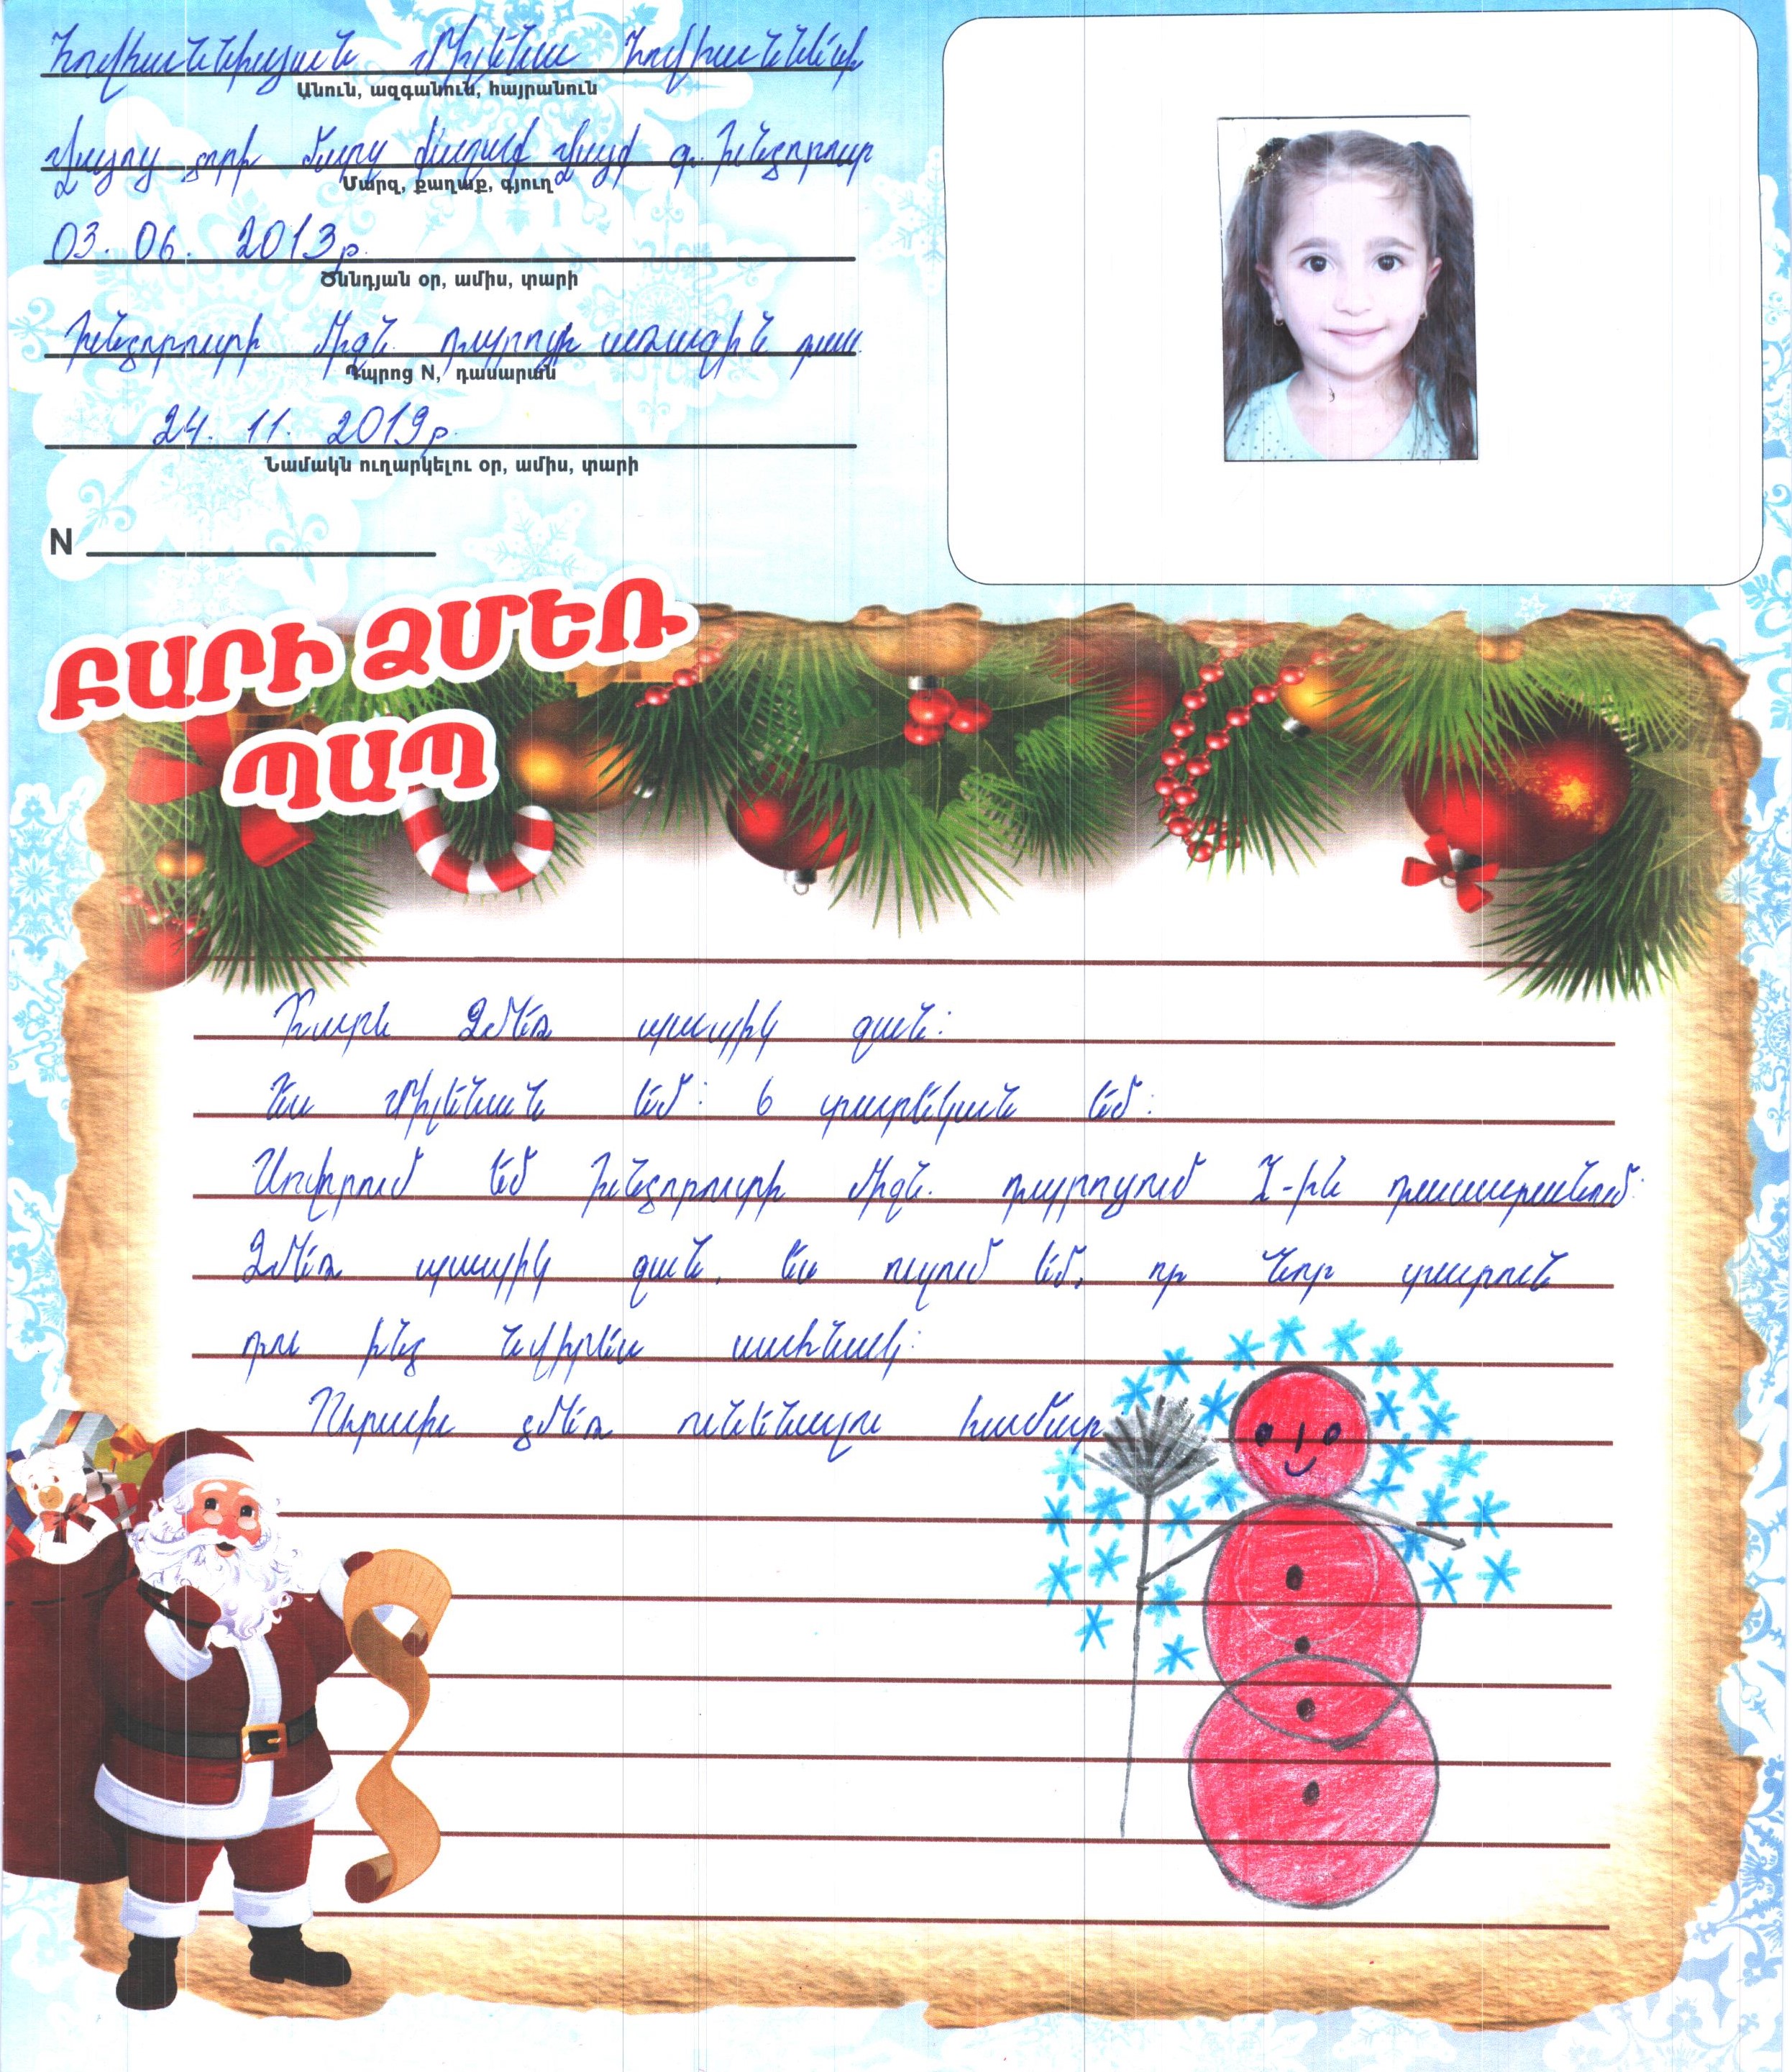 Հովհաննիսյան Միլենա Հովհաննեսի
Անուն, ազգանուն, հայրանուն
Վայոց ձորի մարզ քաղաք Վայք գ. Խնձորուտ
Մարզ, քաղաք, գյուղ
03. 06. 2013թ.
Ծննդյան օր, ամիս, տարի
Խնձորուտի միջն. դպրոցի առաջին դաս.
Դպրոց N, դասարան
24. 11. 2019թ.
Նամակն ուղարկելու օր, ամիս, տարի
N
ԲԱՐԻ ՁՄԵՌ
ՊԱՊ
Բարև Ձմեռ պապիկ ջան:
Ես Միլենան եմ: 6 տարեկան եմ:
Սովորում եմ Խնձորուտի միջն. դպրոցում I-ին դասարանում:
Ձմեռ պապիկ ջան, ես ուզում եմ, որ Նոր տարուն
դու ինձ նվիրես սահնակ:
Ուրախ ձմեռ ունենալու համար: